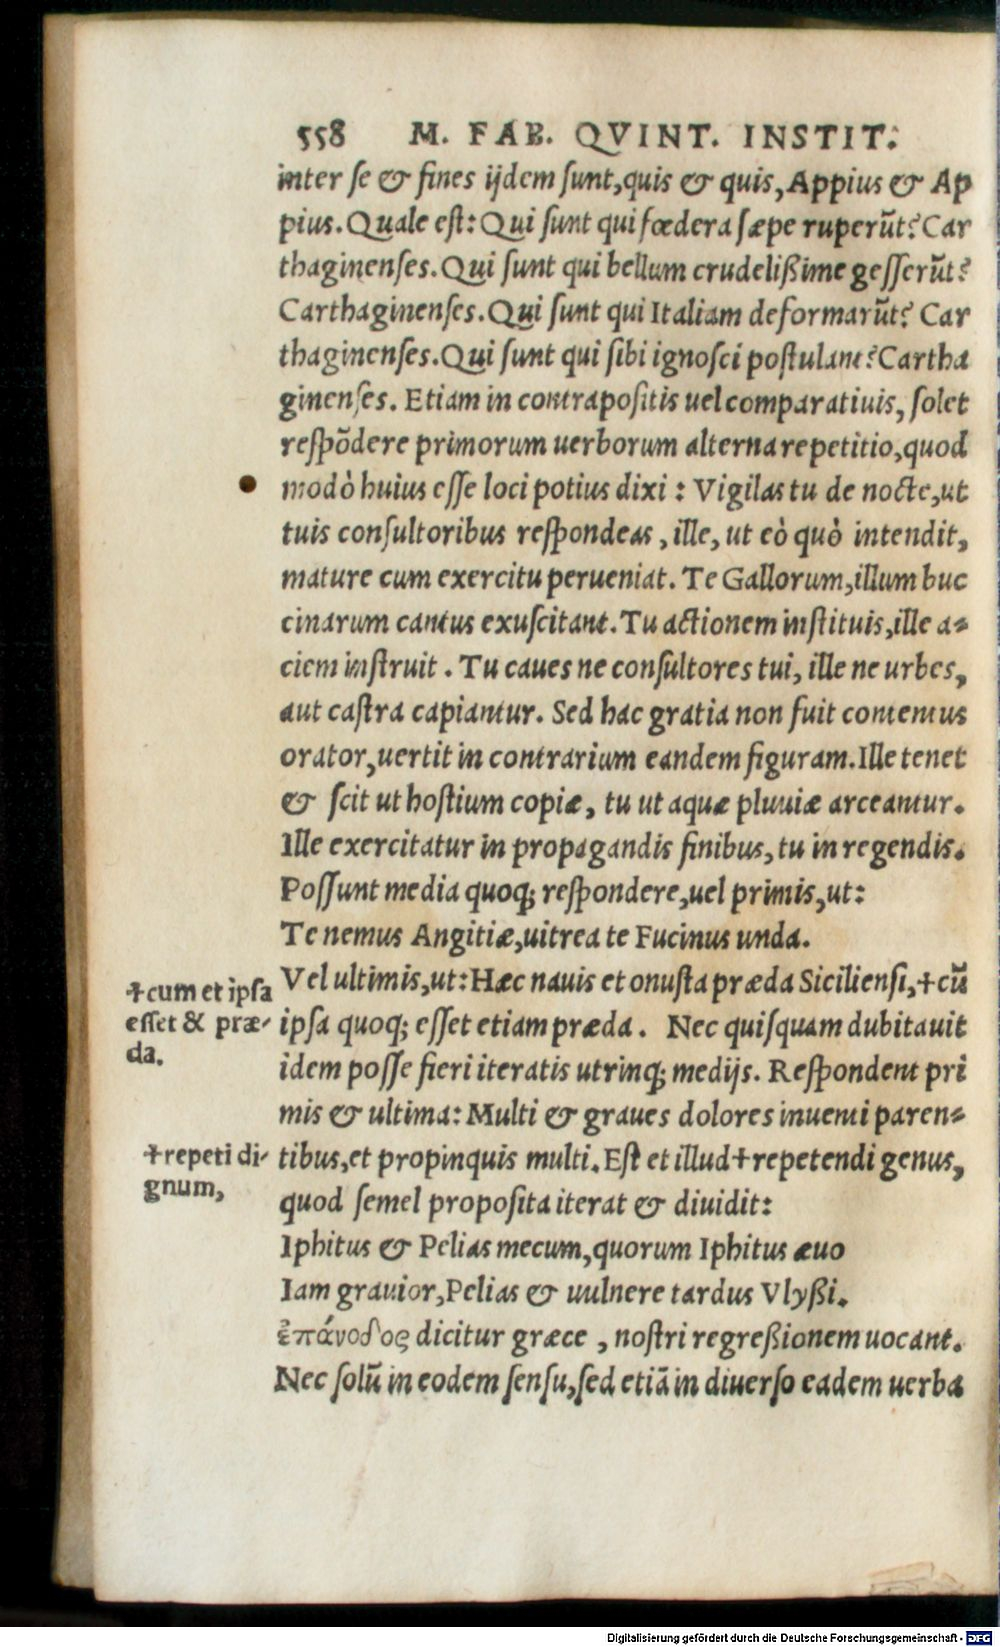 558 M. FAB. QVINT. INSTIT.
inter se & fines ijdem sunt, quis & quis, Appius & Ap
pius. Quale est: Qui sunt qui fœdera sæpe ruperūt? Car
thaginenses. Qui sunt qui bellum crudelißime gesserūt?
Carthaginenses. Qui sunt qui Italiam deformarūt? Car
thaginenses. Qui sunt qui sibi ignosci postulant? Cartha
ginenses. Etiam in contrapositis uel comparatiuis, solet
respōdere primorum uerborum alterna repetitio, quod
modò huius esse loci potius dixi: Vigilas tu de nocte, ut
tuis consultoribus respondeas, ille, ut eò quò intendit,
mature cum exercitu perueniat. Te Gallorum, illum buc
cinarum cantus exuscitant. Tu actionem instituis, ille a-
ciem instruit. Tu caues ne consultores tui, ille ne urbes,
aut castra capiantur. Sed hac gratia non fuit contentus
orator, uertit in contrarium eandem figuram. Ille tenet
& scit ut hostium copiæ, tu ut aquæ pluuiæ arceantur.
Ille exercitatur in propagandis finibus, tu in regendis.
Possunt media quoq; respondere, uel primis, ut:
Te nemus Angitiæ, uitrea te Fucinus unda.
Vel ultimis, ut: Hæc nauis et onusta præda Siciliensi, †cū
ipsa quoq; esset etiam præda. Nec quisquam dubitauit
idem posse fieri iteratis utrinq; medijs. Respondent pri
mis & ultima: Multi & graues dolores inuenti paren-
tibus, et propinquis multi. Est et illud †repetendi genus,
quod semel proposita iterat & diuidit:
Iphitus & Pelias mecum, quorum Iphitus æuo
Iam grauior, Pelias & uulnere tardus Vlyßi.
ἐπάνοδος dicitur græce, nostri regreßionem uocant.
Nec solū in eodem sensu, sed etiā in diuerso eadem uerba
†cum et ipsa
esset & præ-
da.
†repeti di-
gnum,
Digitalisierung gefördert durch die Deutsche Forschungsgemeinschaft - DFG